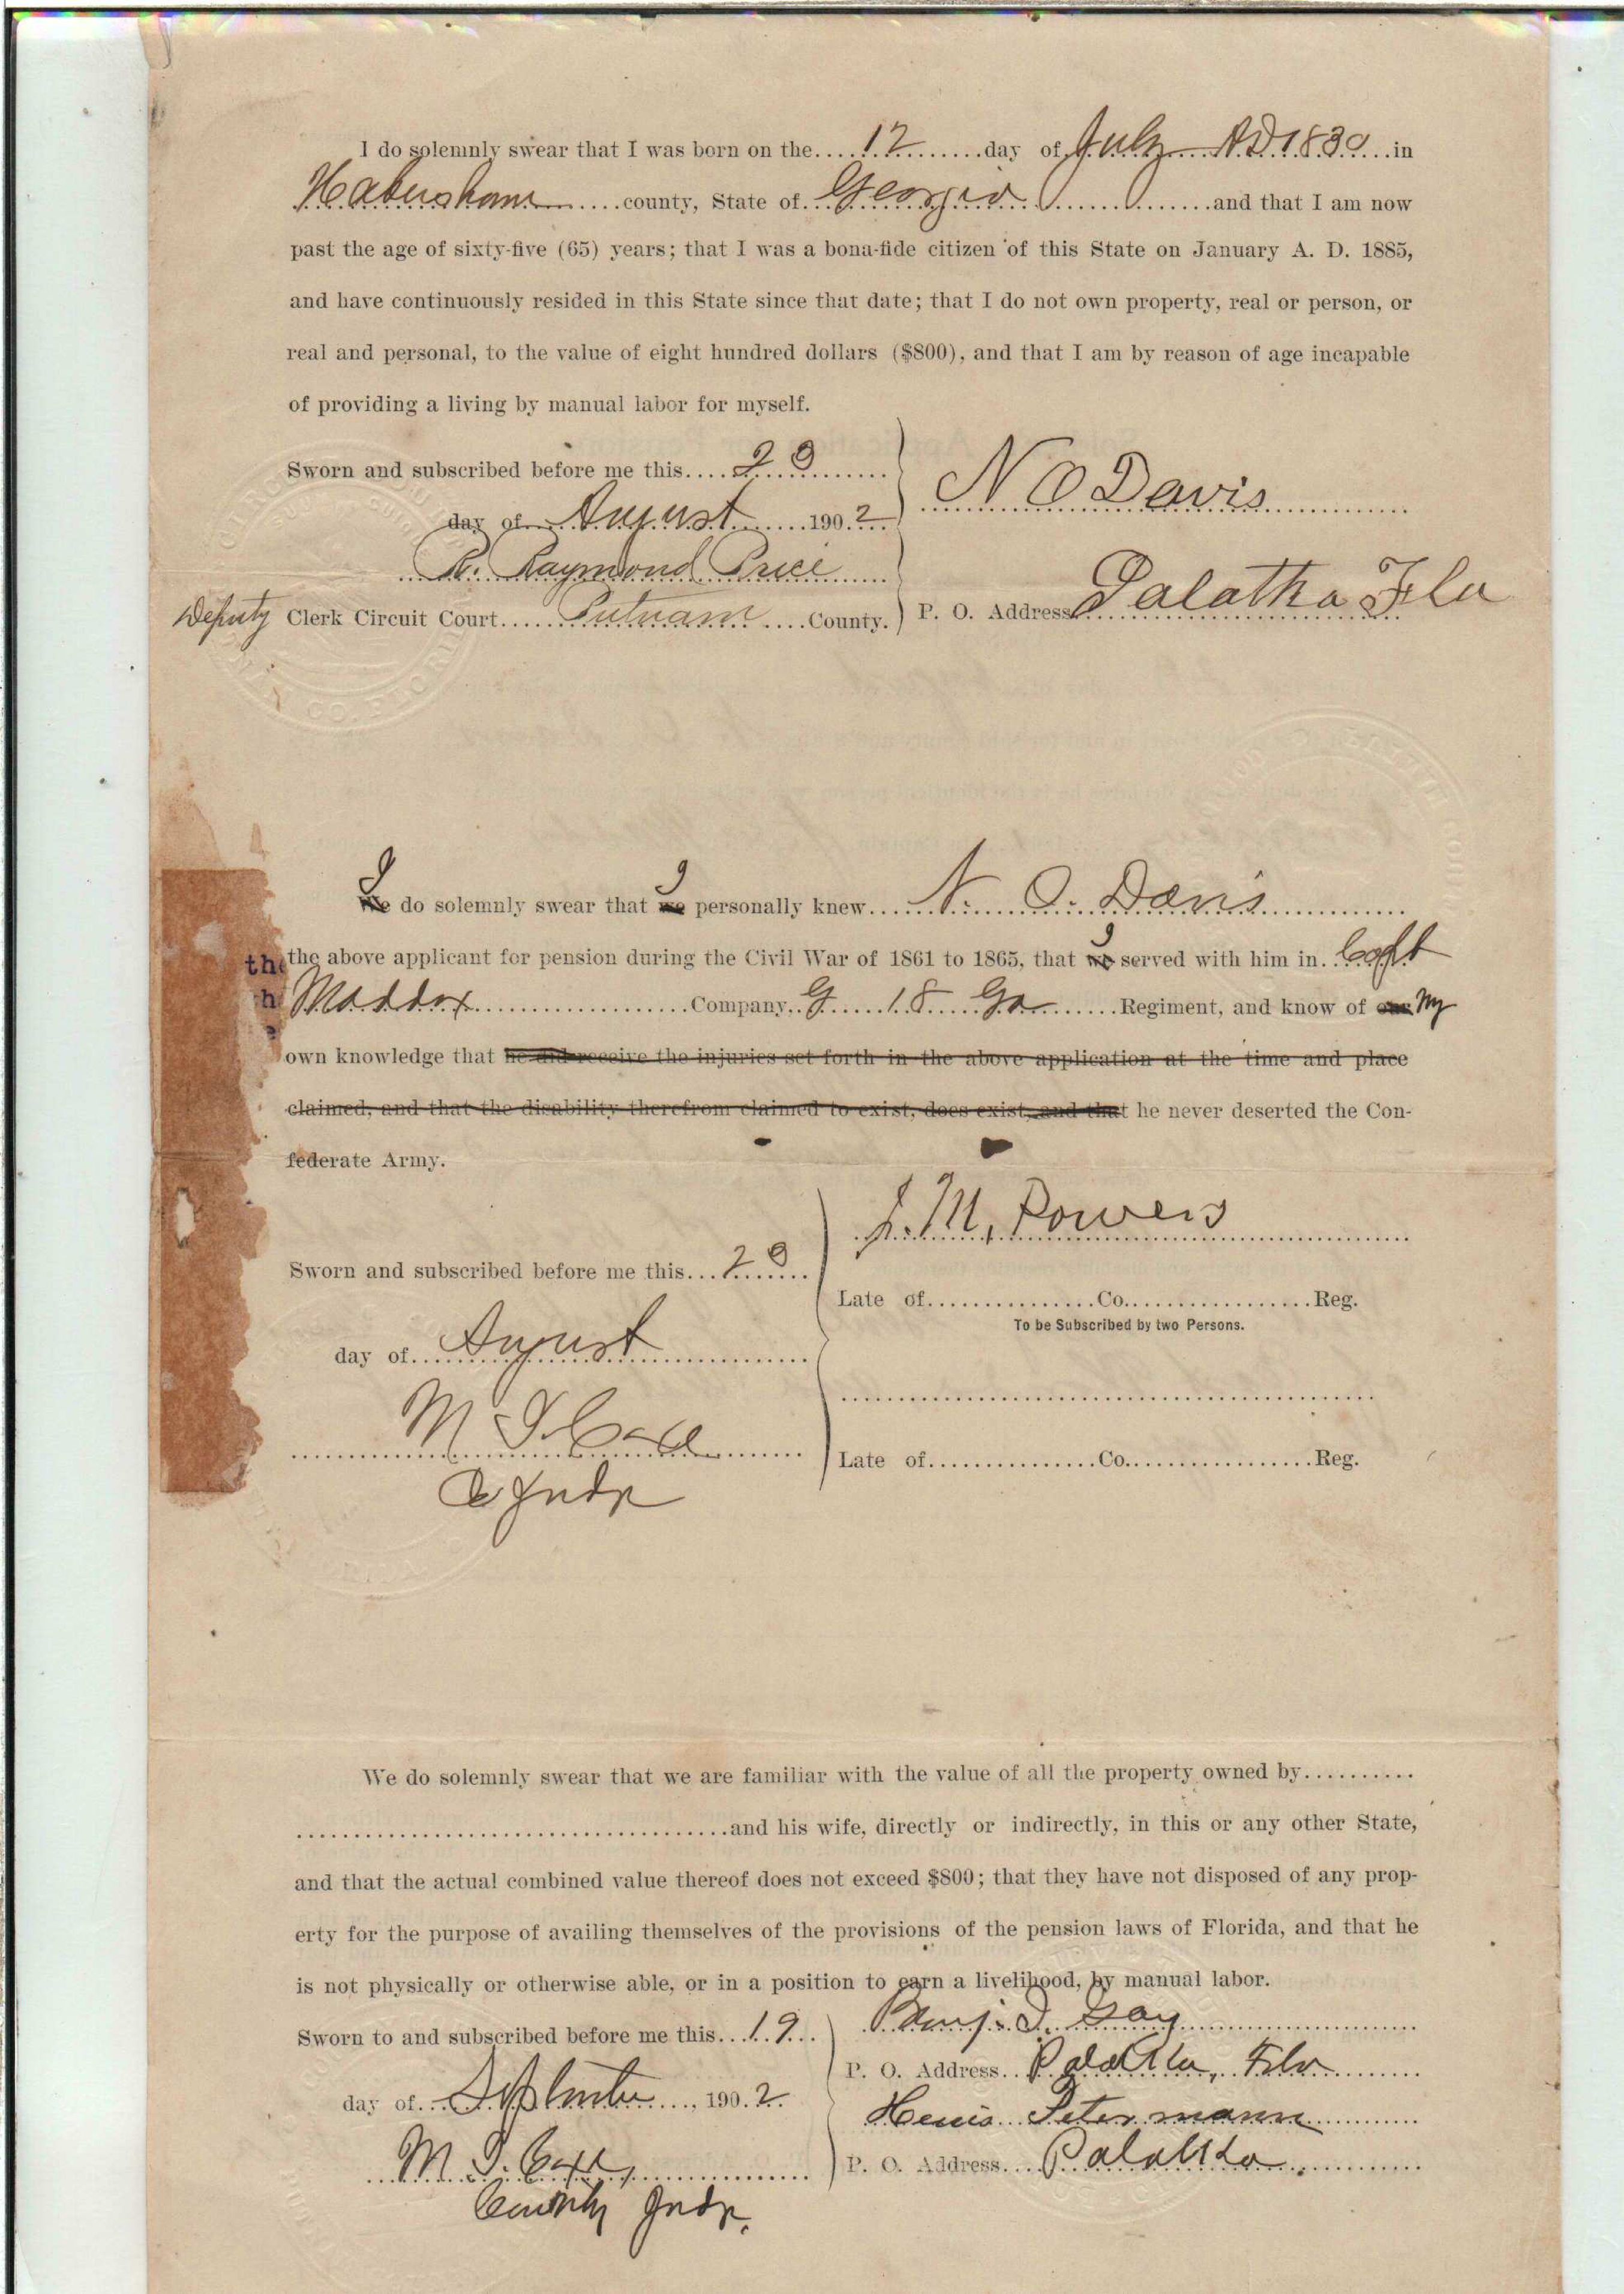 I do solemnly swear that I was born on the....12........day of July AD 1830...in
Habersham.....county, State of...Georgia............and that I am now
past the age of sixty-five (65) years; that I was a bona-fide citizen of this State on January A. D. 1885,
and have continuously resided in this State since that date; that I do not own property, real or person, or
real and personal, to the value of eight hundred dollars ($800), and that I am by reason of age incapable
of providing a living by manual labor for myself.
Sworn and subscribed before me this....
day of....August.......190.2
N O Davis
R. Raymond Price
Deputy Clerk Circuit Court.....Putnam....County.
P. O. Address Palatka Fla
I
We do solemnly swear that we I personally knew.....N. O. Davis
the above applicant for pension during the Civil War of 1861 to 1865, that we I served with him in..Capt
Maddox...................Company..G....18...Ga......Regiment, and know of our my
own knowledge that he did receive the injuries set forth in the above application at the time and place
claimed, and that the disability therefrom claimed to exist, does exist, and that he never deserted the Con-
federate Army.
J. M. Powers
Sworn and subscribed before me this...
Late of................Co..................Reg.
To be Subscribed by two Persons.
day of...August
Late of................Co..................Reg.
We do solemnly swear that we are familiar with the value of all the property owned by..........
......................................and his wife, directly or indirectly, in this or any other State,
and that the actual combined value thereof does not exceed $800; that they have not disposed of any prop-
erty for the purpose of availing themselves of the provisions of the pension laws of Florida, and that he
is not physically or otherwise able, or in a position to earn a livelihood, by manual labor.
Sworn to and subscribed before me this...19..
Benj. I. Gay
P. O. Address...Palatka, Fla
day of...September...., 190.2.
Petermann
P. O. Address....Palatka.
County Judge.